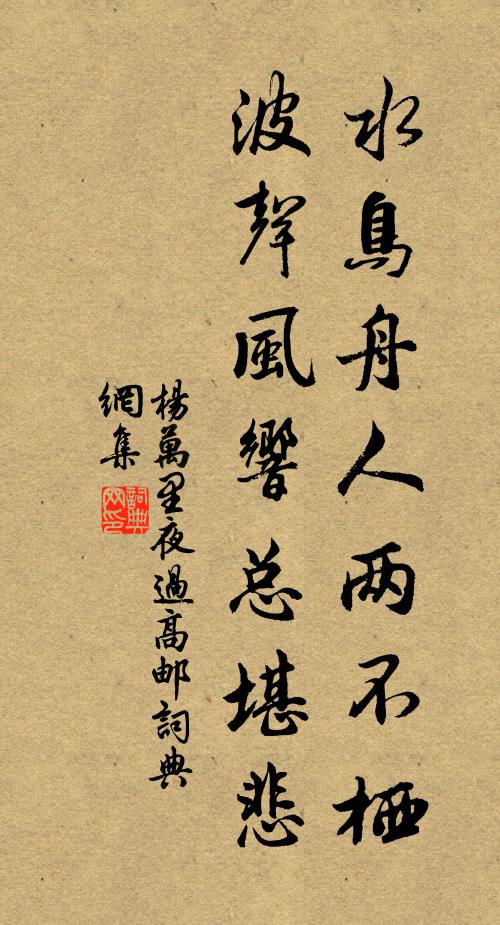 水鳥舟人两不栖
波聲風響总堪悲
楊萬里夜過高邮詞典
網集
詞典
网印